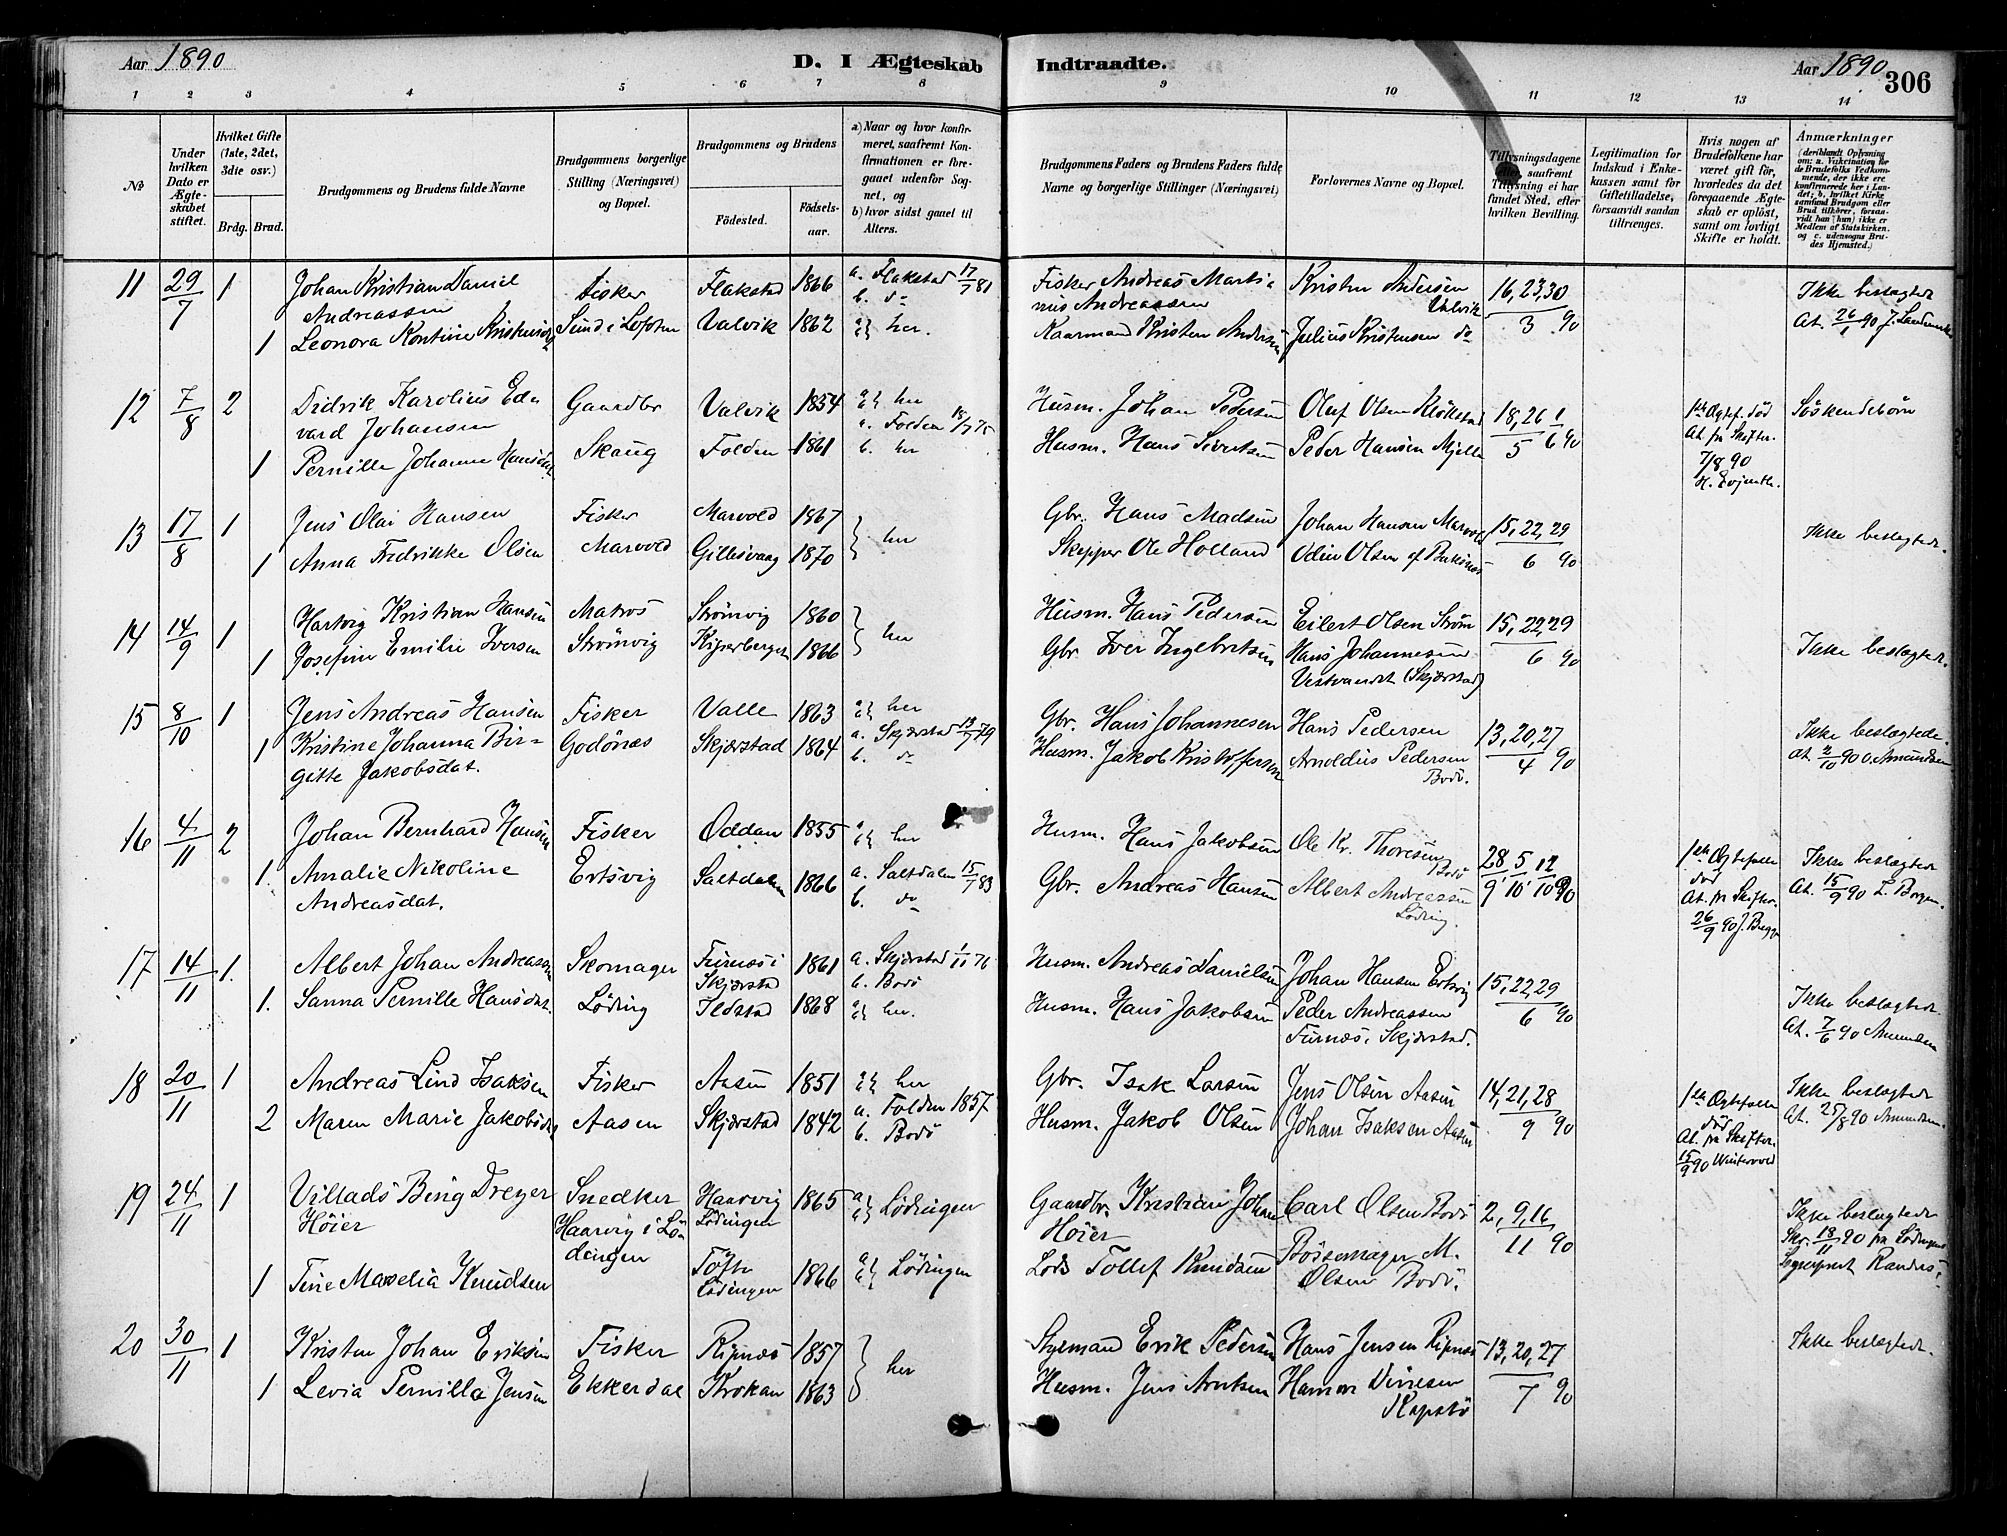 Aar 1890
D. I Ægteskab
Indtraadte.
Aar 1890
306
1 2 3 4 5 6 7 8 9 10 11 12 13 14
№
Under hvilken Dato er Ægteskabet stiftet.
Hvilket Gifte (1ste, 2det, 3die osv.)
Brdg. Brud.
Brudgommens og Brudens fulde Navne
Brudgommens borgerlige Stilling (Næringsvei) og Bopæl.
Brudgommens og Brudens
Fødested.
Fødselsaar.
a) Naar og hvor konfirmeret, saafremt Konfirmationen er foregaaet udenfor Sognet, og
b) hvor sidst gaaet til Alters.
Brudgommens Faders og Brudens Faders fulde Navne og borgerlige Stillinger (Næringsvei)
Forlovernes Navne og Bopæl.
Tillysningsdagene eller, saafremt Tillysning ei har fundet Sted, efter hvilken Bevilling.
Legitimation for Indskud i Enkekassen samt for Giftetilladelse, forsaavidt saadan tiltrænges.
Hvis nogen af Brudefolkene har været gift før, hvorledes da det foregaaende Ægteskab er opløst, samt om lovligt Skifte er holdt.
Anmærkninger
(deriblandt Oplysning om: a. Vakcination for de Brudefolks Vedkommende, der ikke ere konfirmerede her i Landet; b. hvilket Kirkesamfund Brudgom eller Brud tilhører, forsaavidt han (hun) ikke er Medlem af Statskirken. og c. udensogns Brudes Hjemsted.)
11 29/7 1 Johan Kristian Daniel Andreassen Fisker Flakstad 1866 a. Flakstad 17/7 81 b. do Fisker Andreas Martinus Andreassen Kristen Andersen Valvik 16, 23, 30/3 90 Ikke beslægtede
1 Leonora Kontine Sund i Lofoten Valvik 1862 a b her. Kaarmand Kristen Andersen Julius Kristensen do At. 26/1 90 J. Landmark
12 7/8 2 Didrik Karolius Edvard Johansen Gaardbr Valvik 1854 a b her Husm. Johan Pedersen Oluf Olsen Kløkstad 18, 26/5 1/6 90 1ste Ægtef. død At. fra Skifter. 7/8 90 Søskendebørn
1 Pernille Johanne Skaug Folden 1861 a. Folden 18/7 75 b. her Husm. Hans Sivertsen Peder Hansen Mjelle
13 17/8 1 Jens Olai Hansen Fisker Marvold 1867 her Gbr. Hans Madsen Johan Hansen Marvold 15, 22, 29/6 90 Ikke beslægtede.
1 Anna Fredrikke Olsen Marvold Gillesvaag 1870 Skipper Ole Holland Odin Olsen
14 14/9 1 Hartvig Kristian Hansen Matros Strømvig 1860 her Husm. Hans Pedersen Eilert Olsen Strøm 15, 22, 29/6 90 Ikke beslægtede.
1 Josefine Emilie Iversen Strømvig 1866 Gbr. Iver Ingebrtsen Hans Johannesen Vestvandet (Skjærstad)
15 8/10 1 Jens Andreas Hansen Fisker Valle 1863 a b her Gbr. Hans Johannesen Hans Pedersen 13, 20, 27/4 90 Ikke beslægtede.
1 Kristine Johanna Birgitte Jakobsdat. Godønes Skjærstad 1864 a. Skjærstad 13/7 79 b. do Husm. Jakob Kristoffersen Arnoldus Pedersen Bodø. At. 2/10 90 O. Amundsen
16 4/11 2 Johan Bernhard Hansen Fisker Oddan 1855 a b her Husm. Hans Jakobsen Ole Kr. Thoresen Bodø 28/9 5/10 12/10 90 1ste Ægtefælle død At. fra Skifter. 26/9 90 J. Bugge Ikke beslægtede
1. Amalie Nikoline Andreasdat. Ertsvig Saltdalen 1866 a. Saltdalen 15/7 83 b. do Gbr. Andreas Hansen Albert Andreassen Løding. At. 15/9 90
17 14/11 1. Albert Johan Andreassen Skomager Furnæs i Skjærstad 1861 a. Skjærstad 1/11 76 b. Bodø Husm. Andreas Danielsen Johan Hansen Ertsvig 15, 22, 29/6 90
1. Sanna Pernille Hansdat. Løding Ildstad 1868 a b her. Husm. Hans Jakobsen Peder Andreassen Furnæs, Skjærstad. Ikke beslægtede At. 7/6 90 Amundsen
18 20/11 1 Andreas Lind Isaksen Fisker Aasen 1851 a b her Gbr. Isak Larsen Jens Olsen Aasen 14, 21, 28/9 90 1ste Ægtefælle død At. fra Skifter. 15/9 90 Ikke beslægtede
2 Maren Marie Jakobsdat Aasen Skjærstad 1842 a. Folden 1857 b. Bodø Husm. Jakob Olsen Johan Isaksen Aasen At. 25/8 90 Amundsen.
19 24/11 1 Villads Bing Dreyer Høier Snedker Haarvig i Lødingen Haarvig Lødingen 1865 a b Lødingen Gaardbr. Kristian Johan Høier Carl Olsen Bodø 2, 9, 16/11 90 Ikke beslægtede
1 Tine Marselia Knudsen Lødingen 1866 a b Lødingen Lods Tollef Knudsen Bøssemager M. Olsen Bodø. 18/11 90 fra Lødingens
20 30/11 1 Kristen Johan Eriksen Fisker Ripnæs 1857 her Erik Pedersen Hans Jensen Ripnæs 13, 20, 27/7 90 Ikke beslægtede.
1 Levia Pernilla Jensen Ekkerdal Krokan 1863 Husm. Jens Arntsen Kapstø